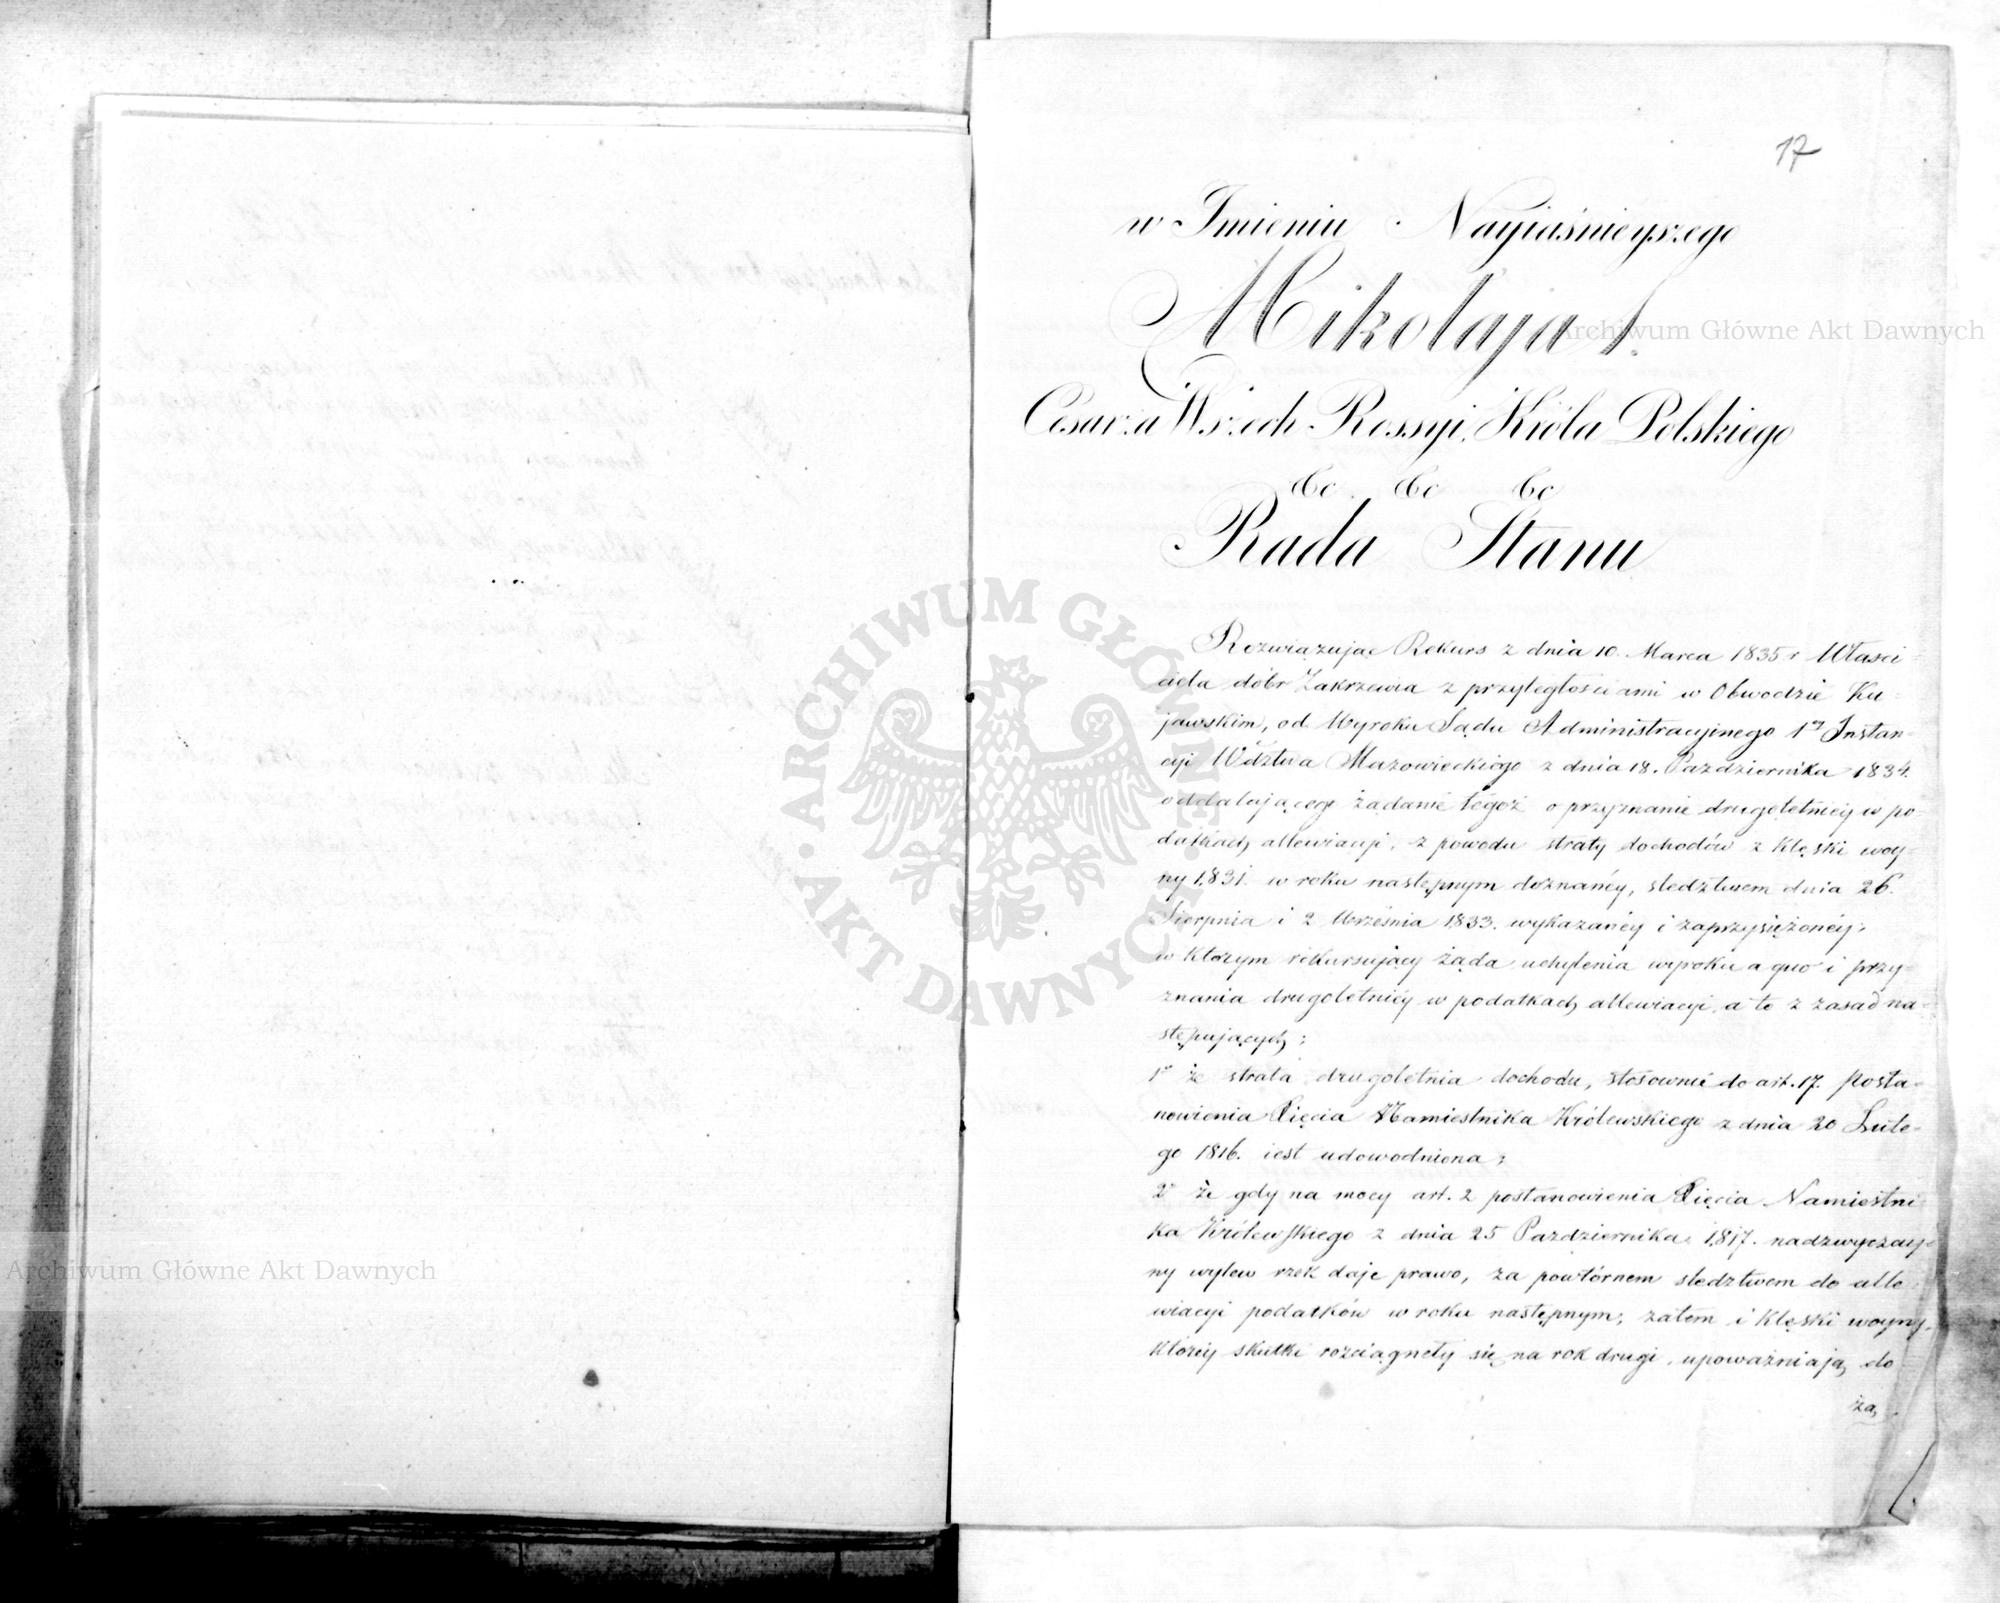 17
w Imieniu Nayiaśnieyszego
Mikołaja I.
Cesarza Wszech Rossyi, Króla Polskiego
&c &c &c
Rada Stanu
Rozwiązując Rekurs z dnia 10. Marca 1835 r Właści-
ciela dóbr Zakrzewia z przyległościami w Obwodzie Ku-
jawskim, od Wyroku Sądu Administracyjnego 1ey Instan-
cyi Wdztwa Mazowieckiego z dnia 18. Października 1834.
oddalającego żądanie tégoż o przyznanie drugoletniéy w po-
datkach allewiacyi, z powodu straty dochodów z klęski woy-
ny 1831. w roku następnym doznanéy, śledztwem dnia 26.
Sierpnia i 2 Września 1833. wykazanéy i zaprzysiężonéy;
w którym rekursujący żąda uchylenia wyroku a quo i przy-
znania drugoletniéy w podatkach allewiacyi, a to z zasad na-
stępujących;
1o że strata drugoletnia dochodu, stosownie do art. 17. Posta-
nowienia Xięcia Namiestnika Królewskiego z dnia 20 Lute-
go 1816. iest udowodniona;
2o że gdy na mocy art. 2 postanowienia Xięcia Namiestni
ka Królewskiego z dnia 25 Października 1817. nadzwyczay-
ny wylew rzek daje prawo, za powtórnem śledztwem do alle-
wiacyi podatków w roku następnym; zatem i klęski woyny,
któréy skutki rozciągnęły się na rok drugi, upoważniają do
żą
Archiwum Główne Akt Dawnych
Archiwum Główne Akt Dawnych
ARCHIWUM GŁÓWNE AKT DAWNYCH